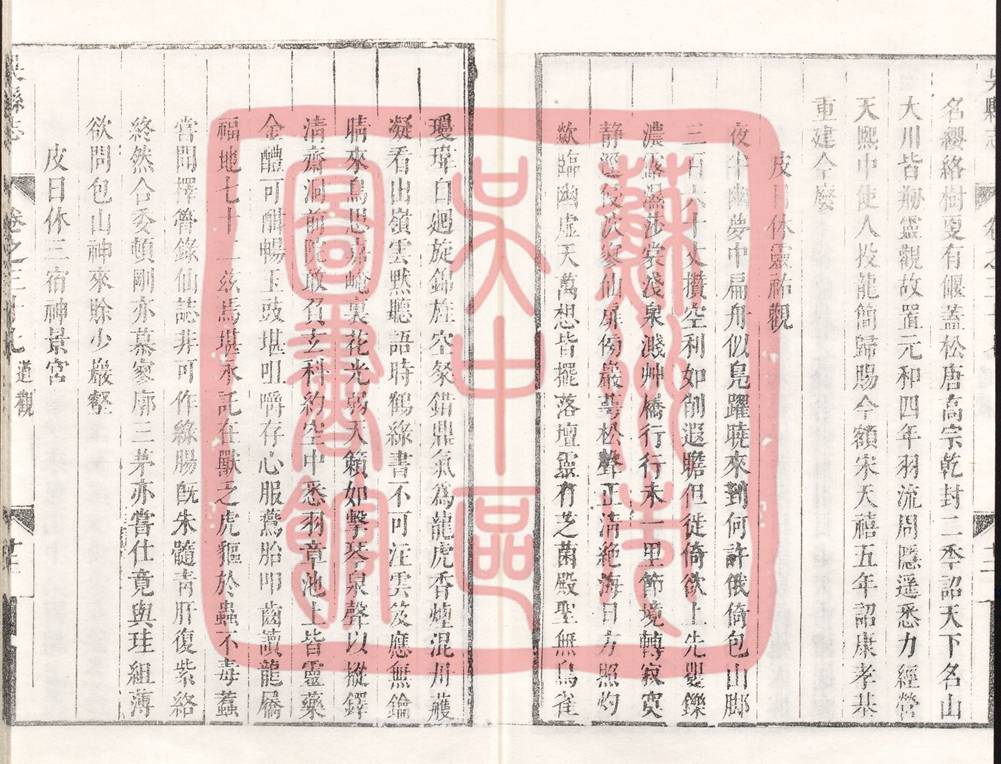 名纓絡樹夏有偃蓋松唐高宗乾封二年詔天下名山
大川皆瓶靈觀故置元和四年羽流周隱遥悉力經營
天熈中使人投龍簡歸賜今額宋天禧五年詔康孝基
重建今廢
皮日休靈祐觀
夜半幽夢中扁舟似鳬躍曉來到何許俄倚包山脚
三百六十丈攢空利如削遐瞻但徙倚欲上先矍鑠
濃露濕莎裳淺泉濺艸橋行行未一里節境轉寂寞
静逕侵泬寥仙扉傍巖崿松聲正清絶海日方照灼
欻臨幽虚天萬想皆擺落壇靈有芝菌殿聖無鳥雀
瓊幃自廻旋錦旌空粲錯鼎氣為龍虎香煙混丹雘
凝看出嶺雲默聽語時鶴綠書不可注雲笈應無鑰
晴來鳥思喜崦裏花光弱天籟如擊琴泉聲以摐鐸
清齋洞前院敢負玄科約空中悉羽章池上皆靈藥
金醴可酣暢玉豉堪咀嚼存心服鷰胎叩齒讀龍蹻
福地七十二兹焉堪永託在獸乏虎貙於蟲不毒蠚
嘗聞擇骨錄仙誌非可作綠腸旣朱髓青肝復紫絡
終然合委頓剛亦慕寥廓三茅亦嘗仕竟與珪組薄
欲問包山神來賒少巖壑
皮日休三宿神景宮
吳縣志 卷之三十九 道觀
蘇州市
吳中區
圖書館